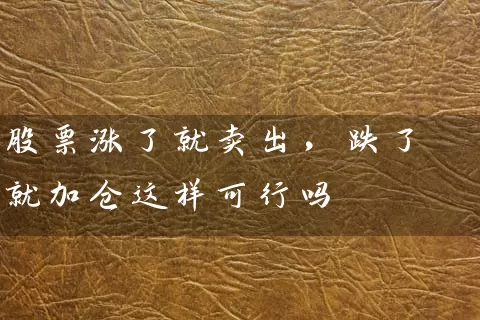 股票涨了就卖出，跌了
就加仓这样可行吗